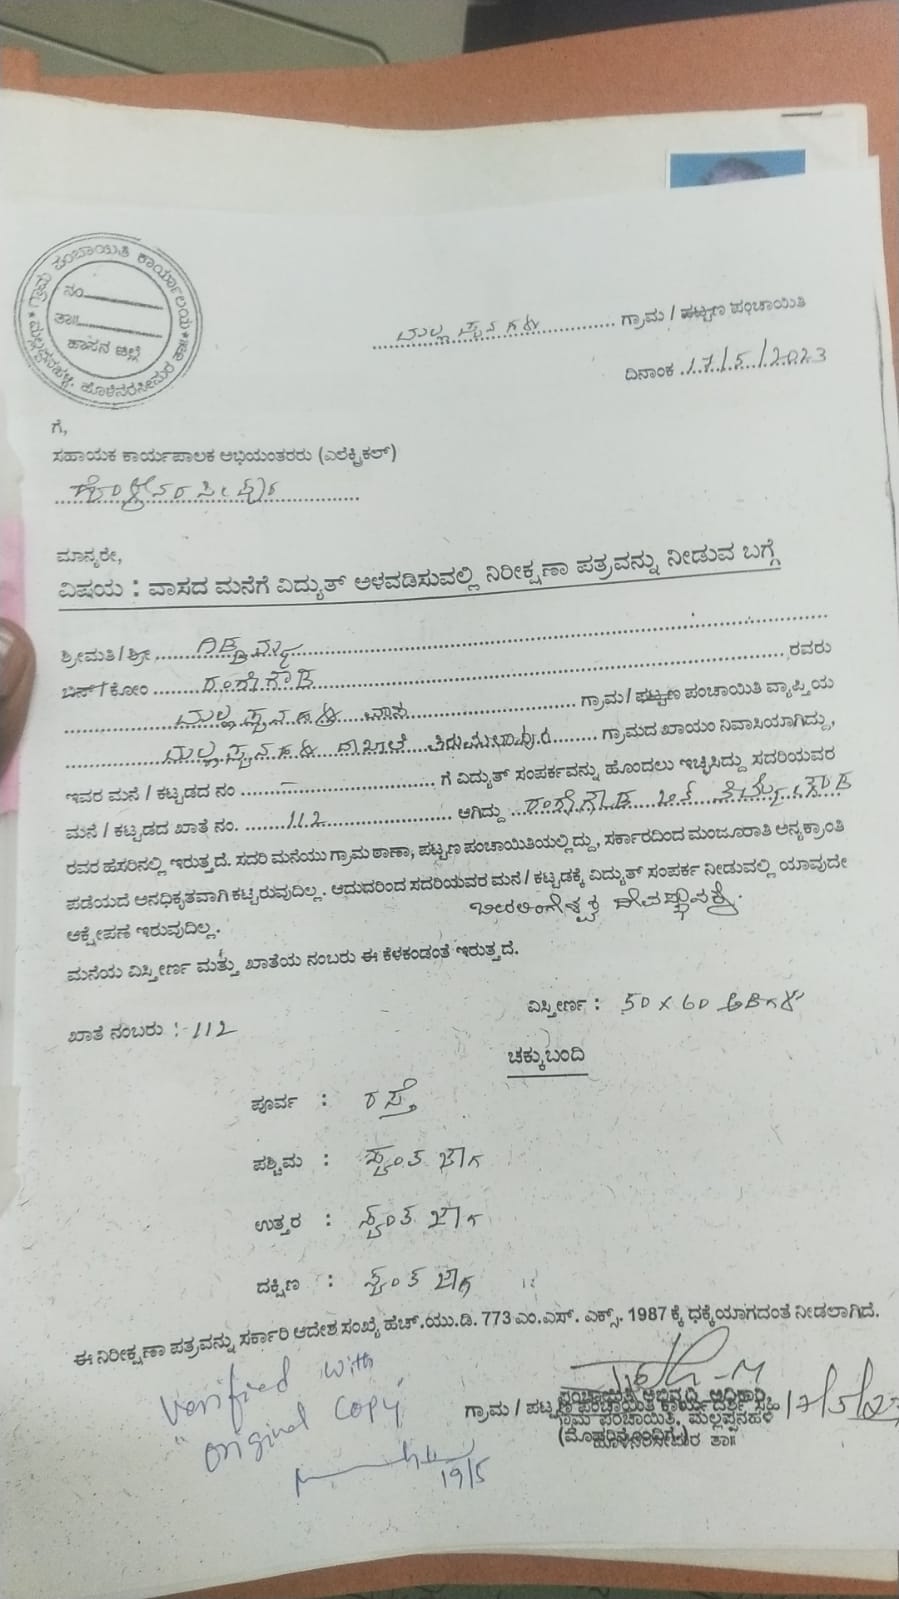 ಗ್ರಾಮ ಪಂಚಾಯಿತಿ ಕಾರ್ಯಾಲಯ
ಮಲ್ಲಪ್ಪನಹಳ್ಳಿ, ಹೊಳೆನರಸೀಪುರ ತಾ॥
ನಂ
ತಾ॥
ಹಾಸನ ಜಿಲ್ಲೆ
ಮಲ್ಲಪ್ಪನಹಳ್ಳಿ ಗ್ರಾಮ / ಪಟ್ಟಣ ಪಂಚಾಯಿತಿ
ದಿನಾಂಕ 17/5/2023
ಗೆ,
ಸಹಾಯಕ ಕಾರ್ಯಪಾಲಕ ಅಭಿಯಂತರರು (ಎಲೆಕ್ಟ್ರಿಕಲ್)
ಹೊಳೆನರಸೀಪುರ
ಮಾನ್ಯರೇ,
ವಿಷಯ : ವಾಸದ ಮನೆಗೆ ವಿದ್ಯುತ್ ಅಳವಡಿಸುವಲ್ಲಿ ನಿರೀಕ್ಷಣಾ ಪತ್ರವನ್ನು ನೀಡುವ ಬಗ್ಗೆ
ಶ್ರೀಮತಿ / ಶ್ರೀ
ಬಿನ್ / ಕೋಂ ರಂಗೇಗೌಡ ರವರು
ಮಲ್ಲಪ್ಪನಹಳ್ಳಿ ಗ್ರಾಮ / ಪಟ್ಟಣ ಪಂಚಾಯಿತಿ ವ್ಯಾಪ್ತಿಯ
ಮಲ್ಲಪ್ಪನಹಳ್ಳಿ ದಾಖಲೆ ಗ್ರಾಮದ ಖಾಯಂ ನಿವಾಸಿಯಾಗಿದ್ದು,
ಇವರ ಮನೆ / ಕಟ್ಟಡದ ನಂ - ಗೆ ವಿದ್ಯುತ್ ಸಂಪರ್ಕವನ್ನು ಹೊಂದಲು ಇಚ್ಛಿಸಿದ್ದು ಸದರಿಯವರ
ಮನೆ / ಕಟ್ಟಡದ ಖಾತೆ ನಂ. 112 ಆಗಿದ್ದು ರಂಗೇಗೌಡ ಬಿನ್
ರವರ ಹೆಸರಿನಲ್ಲಿ ಇರುತ್ತದೆ. ಸದರಿ ಮನೆಯು ಗ್ರಾಮ ಠಾಣಾ, ಪಟ್ಟಣ ಪಂಚಾಯಿತಿಯಲ್ಲಿದ್ದು, ಸರ್ಕಾರದಿಂದ ಮಂಜೂರಾತಿ ಅನ್ಯಕ್ರಾಂತಿ
ಪಡೆಯದೆ ಅನಧಿಕೃತವಾಗಿ ಕಟ್ಟಿರುವುದಿಲ್ಲ. ಆದುದರಿಂದ ಸದರಿಯವರ ಮನೆ / ಕಟ್ಟಡಕ್ಕೆ ವಿದ್ಯುತ್ ಸಂಪರ್ಕ ನೀಡುವಲ್ಲಿ ಯಾವುದೇ
ಆಕ್ಷೇಪಣೆ ಇರುವುದಿಲ್ಲ.
ಮನೆಯ ವಿಸ್ತೀರ್ಣ ಮತ್ತು ಖಾತೆಯ ನಂಬರು ಈ ಕೆಳಕಂಡಂತೆ ಇರುತ್ತದೆ.
ಖಾತೆ ನಂಬರು :- 112 ವಿಸ್ತೀರ್ಣ : 50 x 60 ಅಡಿಗಳು
ಚಕ್ಕುಬಂದಿ
ಪೂರ್ವ : ರಸ್ತೆ
ಪಶ್ಚಿಮ : ಸ್ವಂತ ಜಾಗ
ಉತ್ತರ : ಸ್ವಂತ ಜಾಗ
ದಕ್ಷಿಣ : ಸ್ವಂತ ಜಾಗ
ಈ ನಿರೀಕ್ಷಣಾ ಪತ್ರವನ್ನು ಸರ್ಕಾರಿ ಆದೇಶ ಸಂಖ್ಯೆ ಹೆಚ್.ಯು.ಡಿ. 773 ಎಂ.ಎಸ್. ಎಕ್ಸ್. 1987 ಕ್ಕೆ ಧಕ್ಕೆಯಾಗದಂತೆ ನೀಡಲಾಗಿದೆ.
Verified with
original copy
19/5
ಪಂಚಾಯಿತಿ ಅಭಿವೃದ್ಧಿ ಅಧಿಕಾರಿ,
ಗ್ರಾಮ / ಪಟ್ಟಣ ಪಂಚಾಯಿತಿ ಕಾರ್ಯದರ್ಶಿ ಸಹಿ 17/5/23
ಗ್ರಾಮ ಪಂಚಾಯಿತಿ, ಮಲ್ಲಪ್ಪನಹಳ್ಳಿ
(ಮೊಹರಿನೊಂದಿಗೆ)
ಹೊಳೆನರಸೀಪುರ ತಾ॥